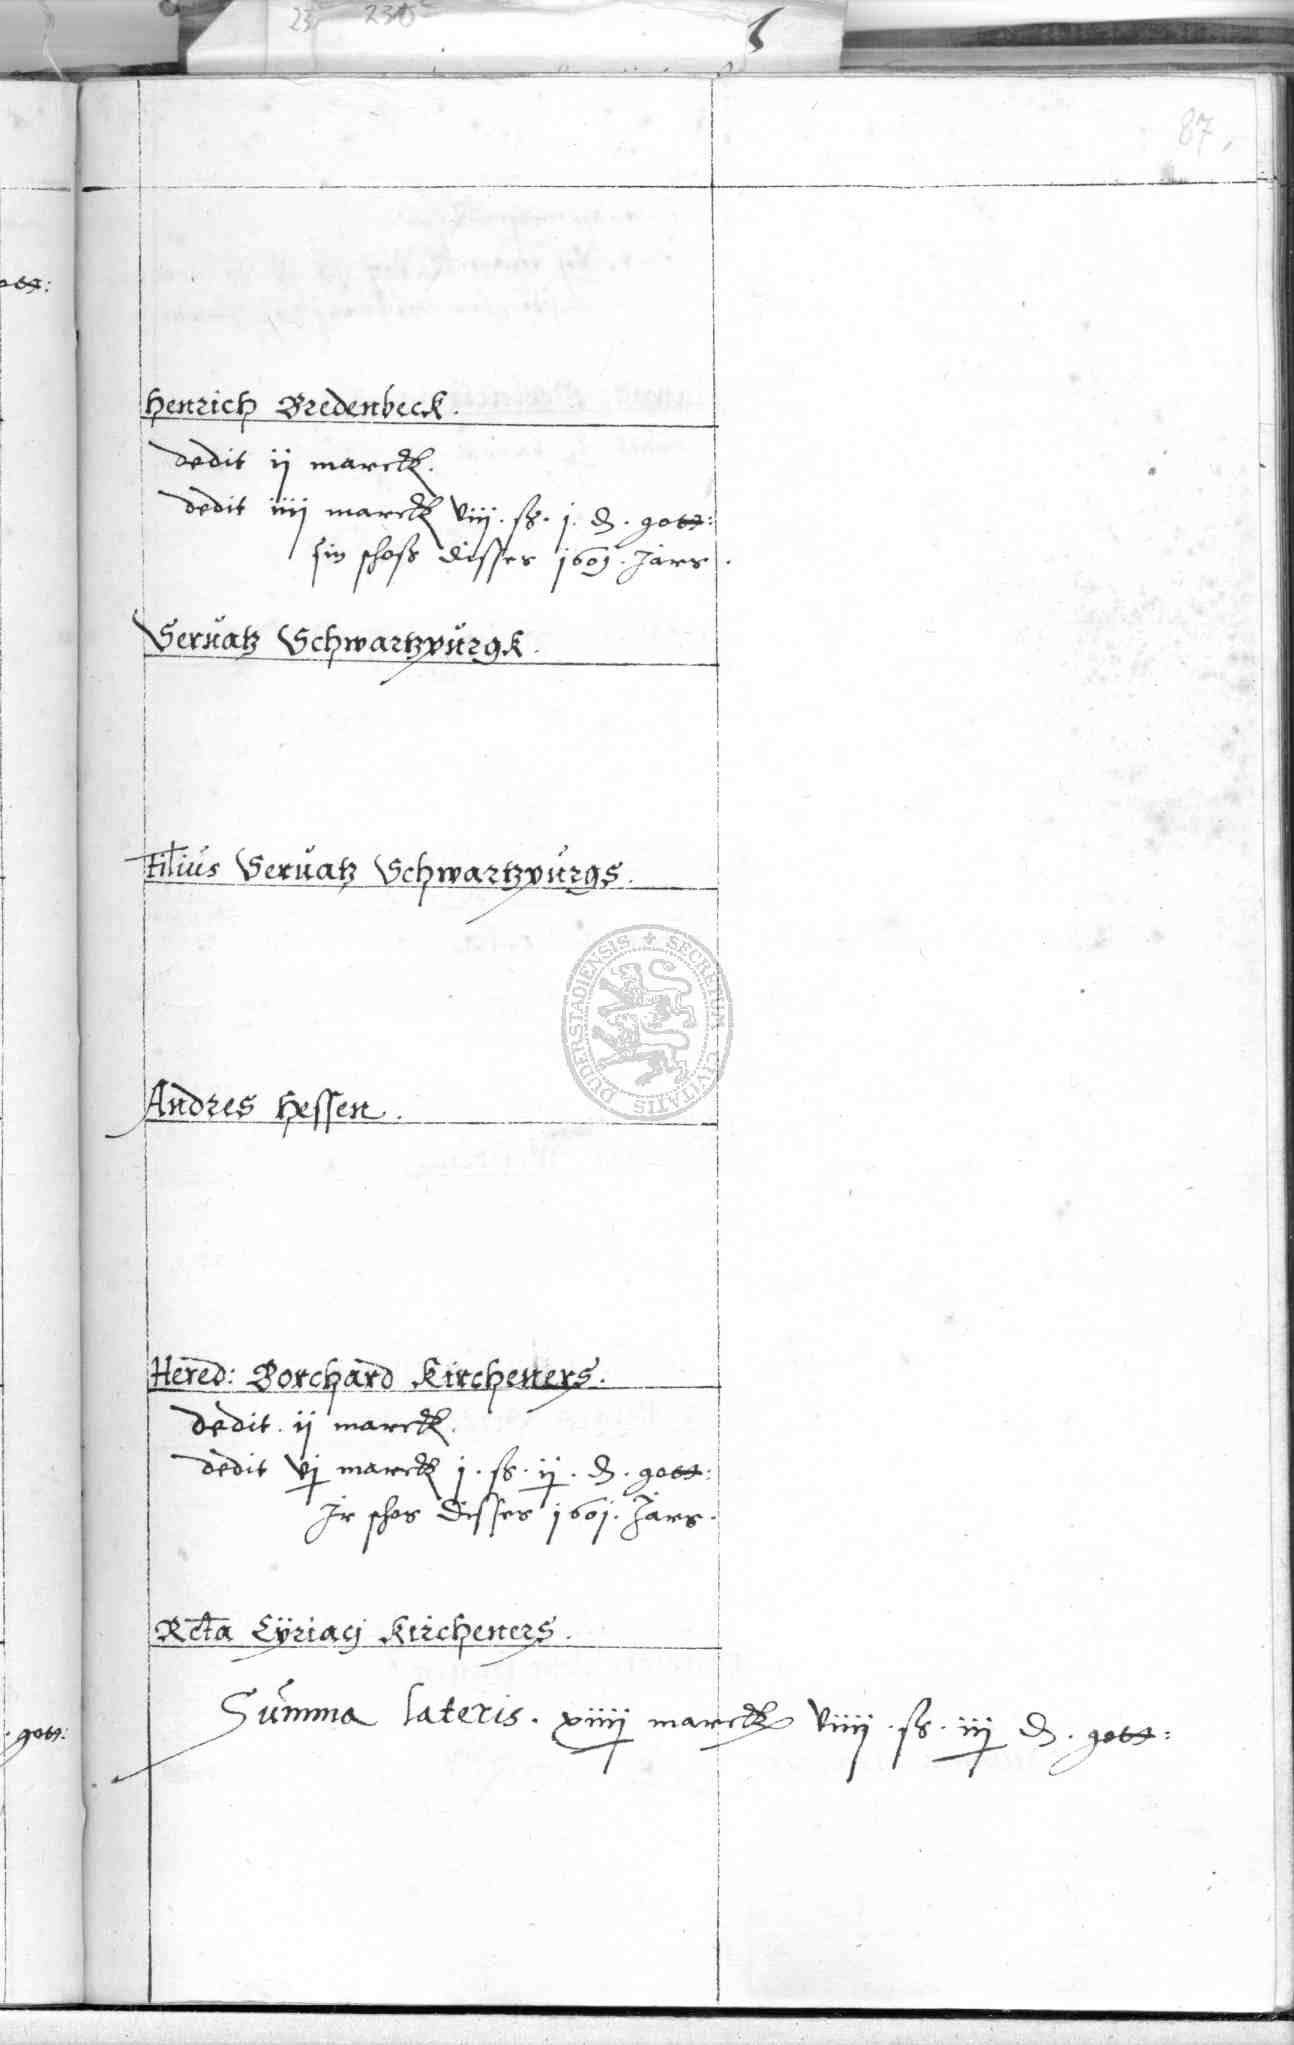 23 230
87.
Henrich Bredenbeck.
dedit ij marck.
dedit iiij marck viij. ß. j. d. gott:
sin schoß disses 1601. Jars.
Seruatz Schwartzpurgk.
Filius Seruatz Schwartzpurgs.
DUDERSTADIENSIS + SECRETUM CIVITATIS
Andres Hessen.
Hered: Borchard Kircheners.
dedit. ij marck.
dedit vj marck j. ß. ij. d. gott:
Jr schos disses 1601. Jars.
Rcta Cyriacj Kircheners.
Summa lateris. xiiij marck viiij. ß. iij d. gott:
gott: